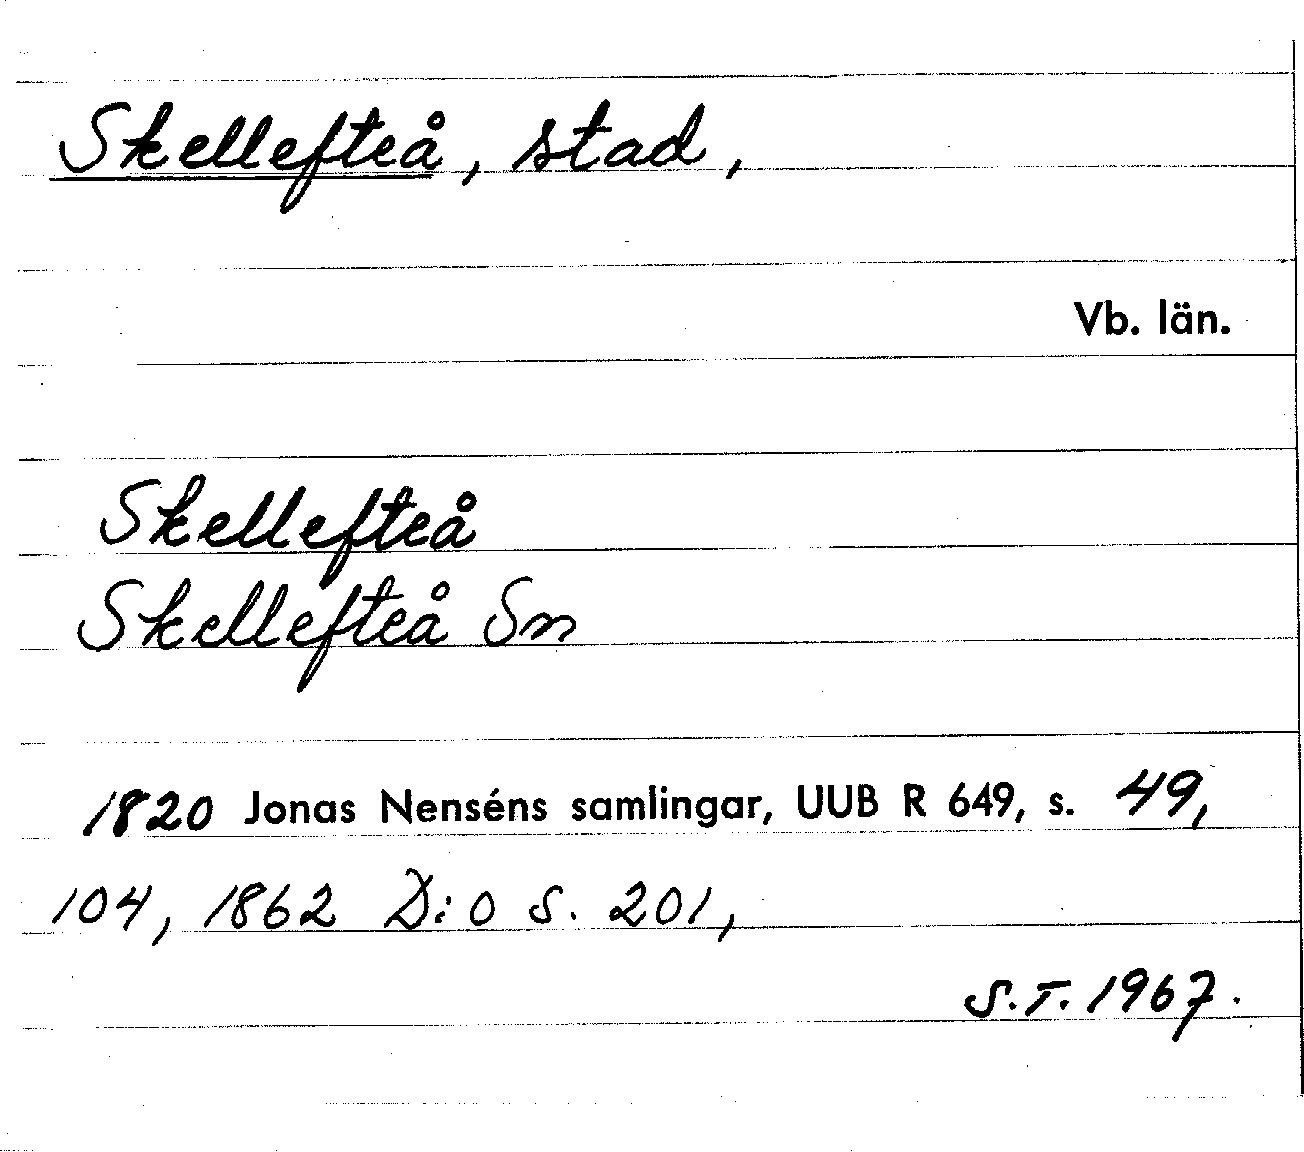 Skellefteå, stad,
Vb. län.
Skellefteå
Skellefteå Sn
1820 Jonas Nenséns samlingar, UUB R 649, s. 49,
104, 1862 D:o S. 201,
S.T. 1967.